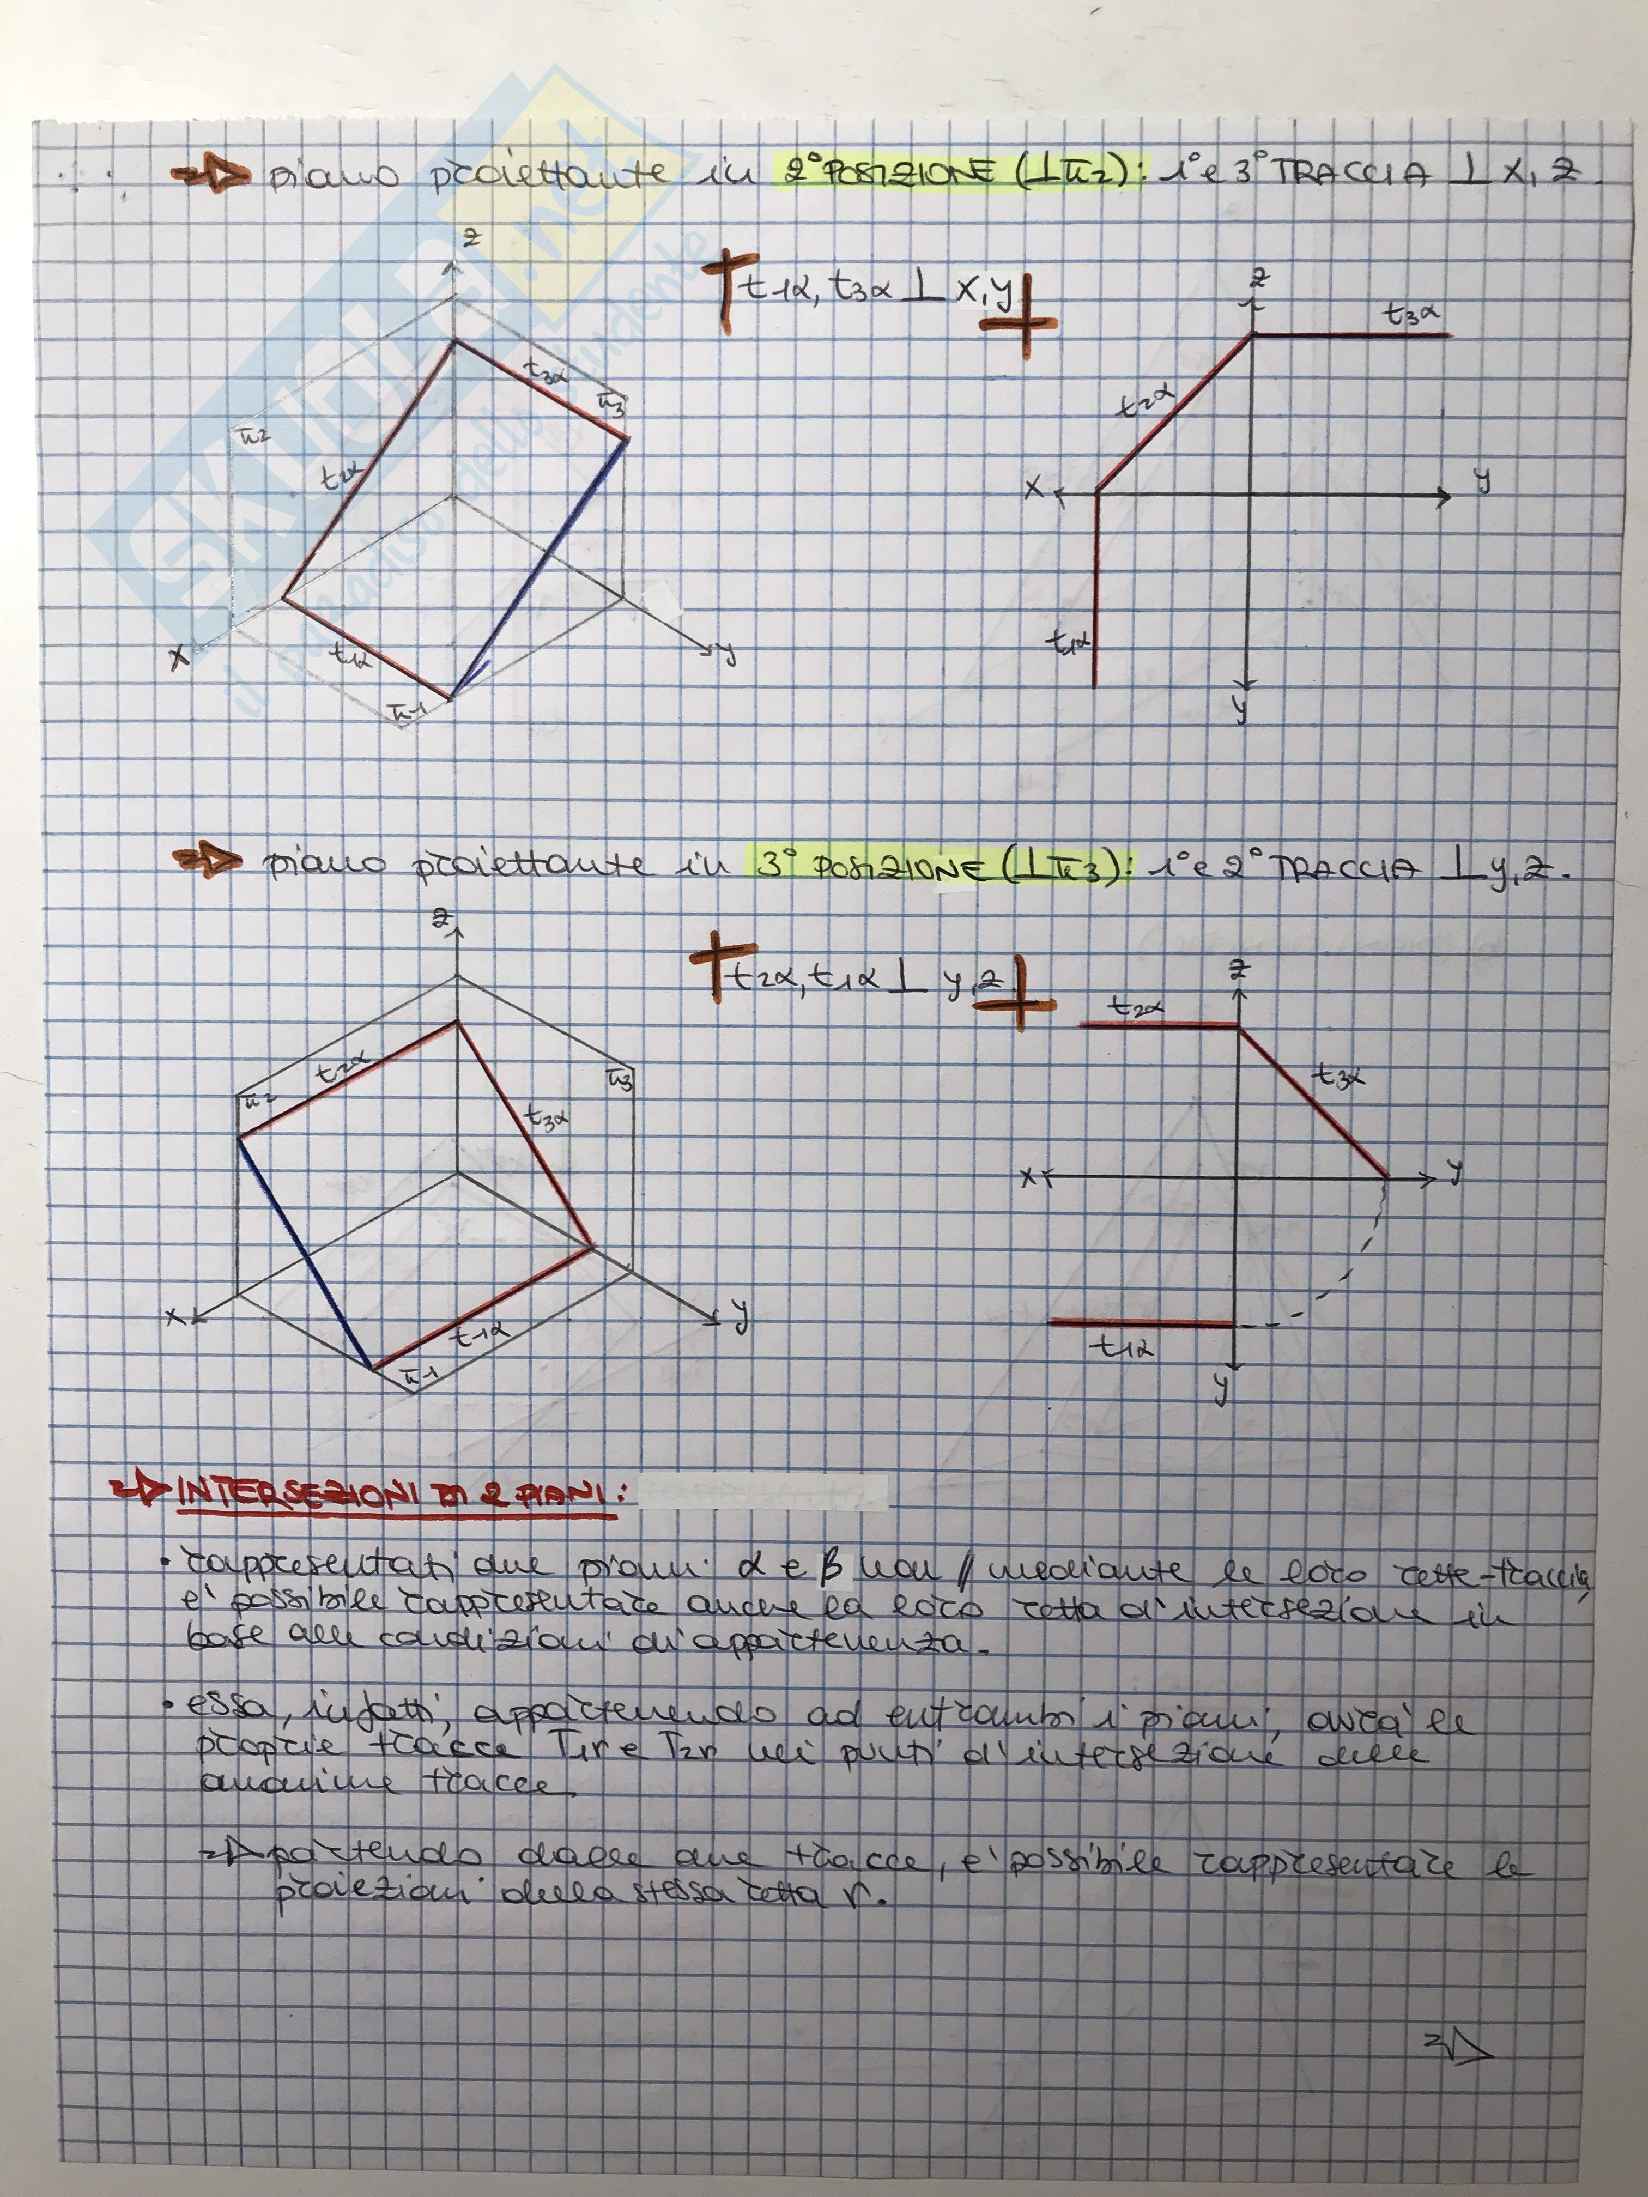 => piano proiettante in 2° POSIZIONE (⊥π2): 1° e 3° TRACCIA ⊥ x, z.
t1α, t3α ⊥ x, y
z
t3α
π3
π2
t2α
x
t1α
π1
y
z
t3α
t2α
x
y
t1α
y
SKUOLA.net
il paradiso dello studente
=> piano proiettante in 3° POSIZIONE (⊥π3): 1° e 2° TRACCIA ⊥ y, z.
t2α, t1α ⊥ y, z
z
t2α
π2
π3
t3α
x
t1α
π1
y
z
t2α
t3α
x
y
t1α
y
=> INTERSEZIONI DI 2 PIANI:
• rappresentati due piani α e β non // mediante le loro rette-traccia,
e' possibile rappresentare anche la loro retta d'intersezione in
base alle condizioni di appartenenza.
• essa, infatti, appartenendo ad entrambi i piani, avrà le
proprie tracce T1r e T2r nei punti d'intersezione delle
omonime tracce.
=> partendo dalle due tracce, e' possibile rappresentare le
proiezioni della stessa retta r.
=>